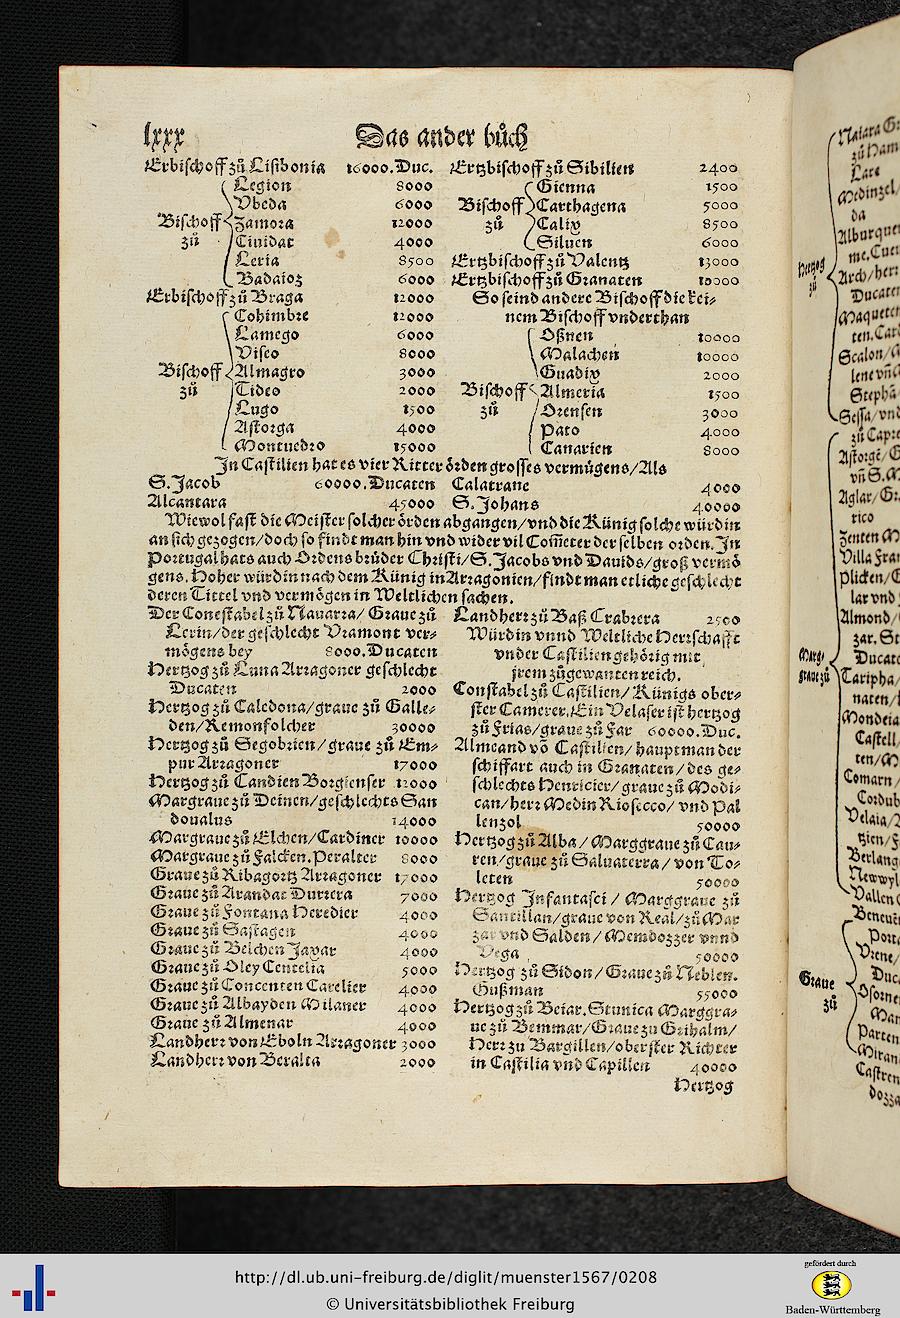 lxxx Das ander bůch
Erbischoff zů Lisibonia 16000. Duc.
Bischoff zů
Legion 8000
Vbeda 6000
Zamora 12000
Ciuidat 4000
Leria 8500
Badaioz 6000
Erbischoff zů Braga 12000
Bischoff zů
Cohimbre 12000
Lamego 6000
Viseo 8000
Almagro 3000
Tideo 2000
Lugo 1500
Astorga 4000
Montuedro 15000
Ertzbischoff zů Sibilien 2400
Bischoff zů
Gienna 1500
Carthagena 5000
Calix 8500
Siluen 6000
Ertzbischoff zů Valentz 13000
Ertzbischoff zů Granaten 10000
So seind andere Bischoff die kei-
nem Bischoff vnderthan
Bischoff zů
Oßnen 10000
Malachen 10000
Guadix 2000
Almeria 1500
Orensen 3000
Pato 4000
Canarien 8000
In Castilien hat es vier Ritter örden grosses vermůgens/Als
S. Jacob 60000. Ducaten Calatrane 4000
Alcantara 45000 S. Johans 40000
Wiewol fast die Meister solcher örden abgangen/vnd die Künig solche würdin
an sich gezogen/doch so findt man hin vnd wider vil Com̃eter der selben orden. In
Portugal hats auch Ordens brüder Christi/S. Jacobs vnd Dauids/groß vermö
gens. Hoher würdin nach dem Künig in Arragonien/findt man etliche geschlecht
deren Tittel vnd vermögen in Weltlichen sachen.
Der Conestabel zů Nauarra/Graue zů
Lerin/der geschlecht Vramont ver-
mögens bey 8000. Ducaten
Hertzog zů Luna Arragoner geschlecht
Ducaten 2000
Hertzog zů Caledona/graue zů Galle-
den/Remonfolcher 30000
Hertzog zů Segobrien/graue zů Em-
pur Arragoner 17000
Hertzog zů Candien Borgienser 12000
Margraue zů Deinen/geschlechts San
doualus 14000
Margraue zů Elchen/Cardiner 10000
Margraue zů Falcken. Peralter 8000
Graue zů Ribagortz Arragoner 17000
Graue zů Arandat Durrera 7000
Graue zů Fontana Heredier 4000
Graue zů Sastagen 4000
Graue zů Belchen Jxar 4000
Graue zů Oley Centelia 5000
Graue zů Concenten Carelier 4000
Graue zů Albayden Milaner 4000
Graue zů Almenar 4000
Landherr von Eboln Arragoner 3000
Landherr von Beralta 2000
Landherr zů Baß Crabrera 2500
Würdin vnnd Weltliche Herrschafft
vnder Castilien gehörig mit
jrem zůgewanten reich.
Constabel zů Castilien/Künigs ober-
ster Camerer. Ein Velaser ist hertzog
zů Frias/graue zů Far 60000. Duc.
Almeand võ Castilien/hauptman der
schiffart auch in Granaten/des ge-
schlechts Henricier/graue zů Modi-
can/herr Medin Riosecco/vnd Pal
lenzol 50000
Hertzog zů Alba/Marggraue zů Cau-
ren/graue zů Saluaterra/von To-
leten 50000
Hertzog Infantasci/Marggraue zů
Santillan/graue von Real/zů Mar
zar vnd Salden/Memdozzer vnnd
Vega 50000
Hertzog zů Sidon/Graue zů Neblen.
Gußman 55000
Hertzog zů Beiar. Stunica Marggra-
ue zů Bemmar/Graue zu Grihalm/
Herr zu Bargillen/oberster Richter
in Castilia vnd Capillen 40000
Hertzog
Hertzog zů
Marg-
graue zů
Graue zů
http://dl.ub.uni-freiburg.de/diglit/muenster1567/0208
© Universitätsbibliothek Freiburg
gefördert durch
Baden-Württemberg